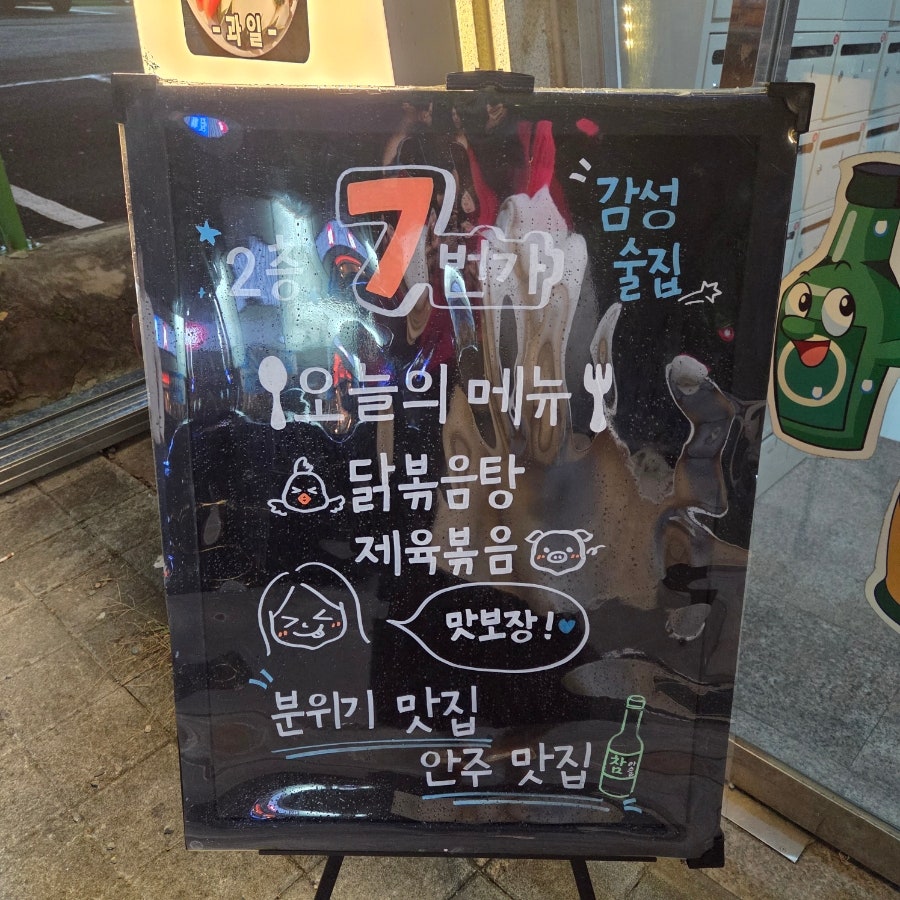 - 과일 -
감성
술집
2층 7번가
오늘의 메뉴
닭볶음탕
제육볶음
맛보장!
분위기 맛집
안주 맛집
참이슬